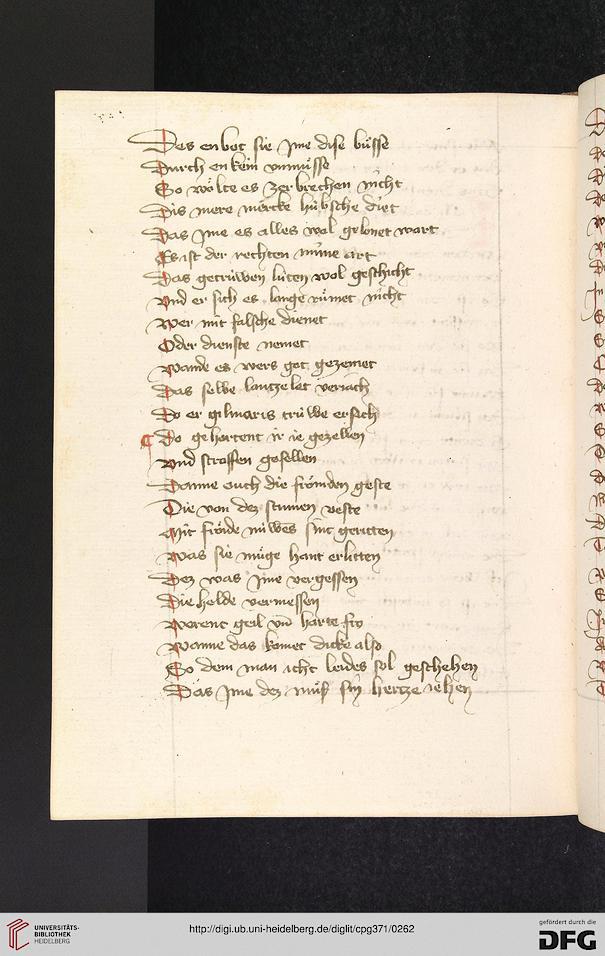 Des enbot sie jme dise buͦsse
Durch enkein vnmuͦsse
So woͤlte es zerbrechen nicht
Dis mere mercke húbsche diet
Das jme es alles wol gelonet wart
Es ist der rechten mynne art
Das getrúwen lúten wol geschicht
Vnd er sich es lange ruͤmet nicht
Wer mit falsche dienet
Oder dienste nemet
Wande es wers got gezemet
Das selbe lantzelet veriach
Do er gilimaris trúwe ersach
Do gehortent ir ie gezellen
Vnd straffen gesellen
Danne ouch die froͤmden geste
Die von der stumen veste
Mit froͤide nuwes sint geritten
Was sie muͤge hant erlitten
Dez was jme vergessen
Die helde vermessen
Worent geil vn̄ harte fro
Wanne das komet dicke also
So dem man icht leides sol geschehen
Das jme dez muͦß sin hertze iehen
UNIVERSITÄTS-
BIBLIOTHEK
HEIDELBERG
http://digi.ub.uni-heidelberg.de/diglit/cpg371/0262
gefördert durch die
DFG